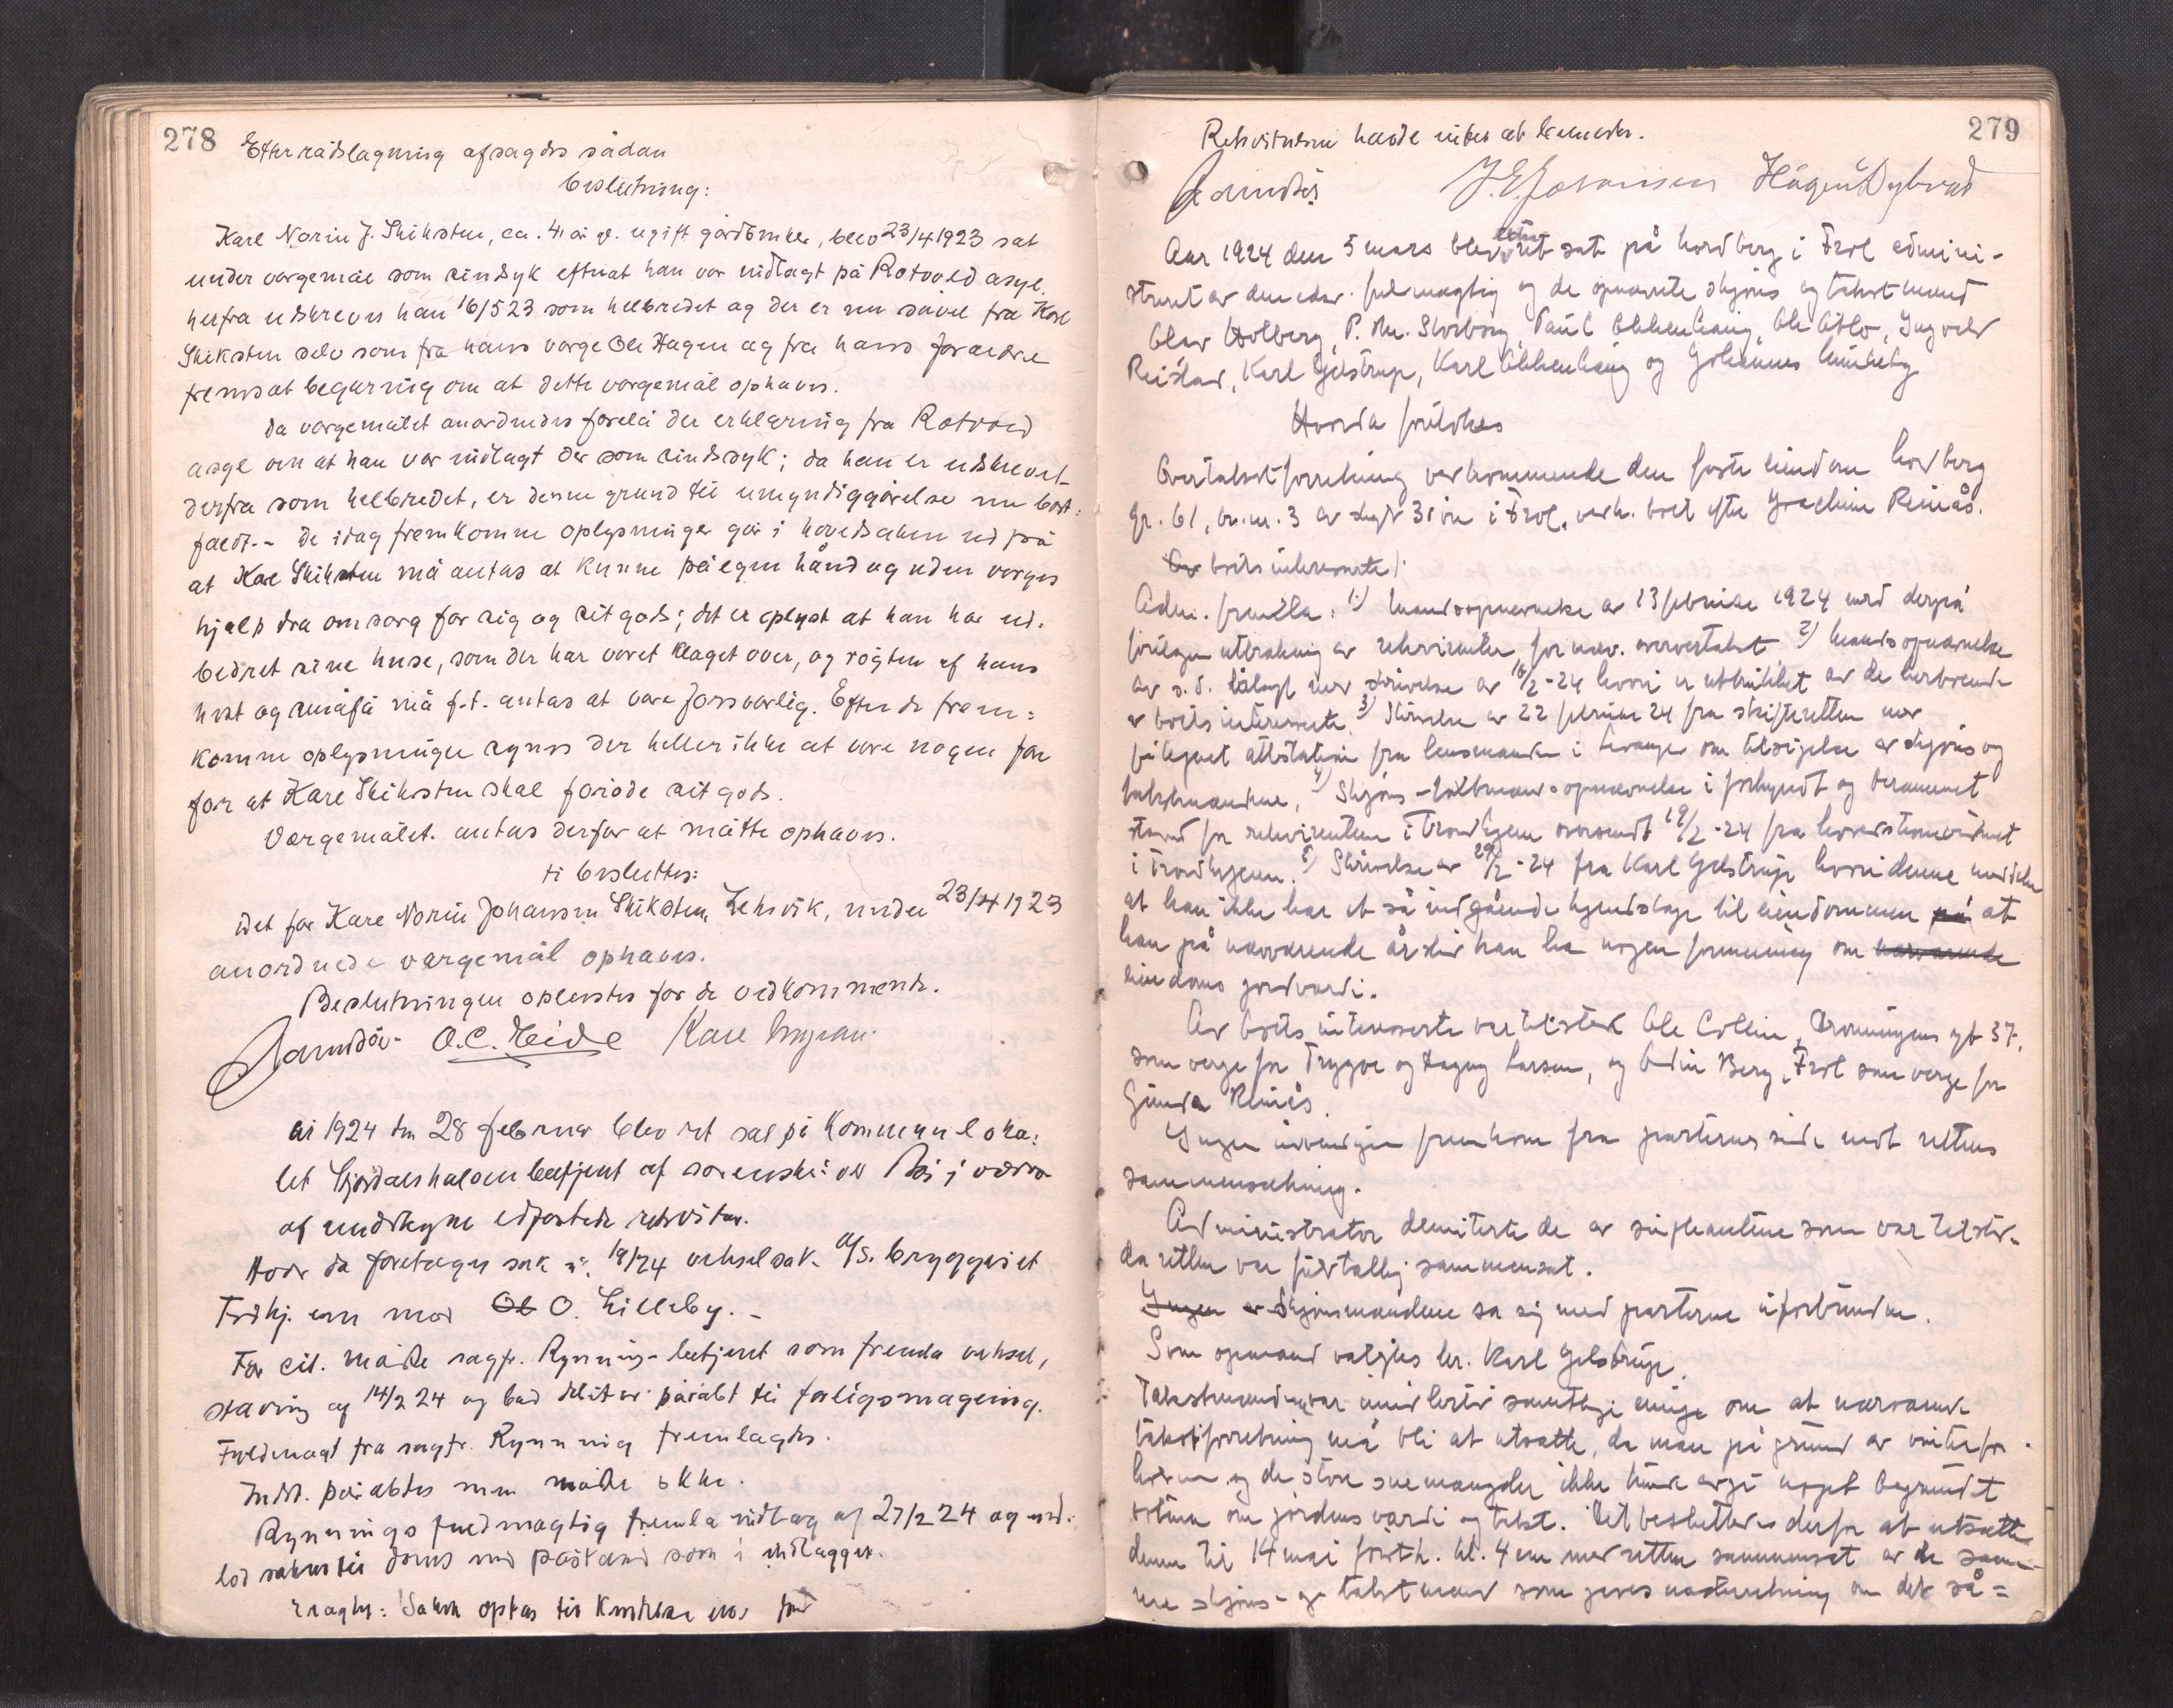 278
Efter rådslagning afsagdes sådan
beslutning:
Kare Norin J. Skiksten, ca. 41 år g. ugift gårdbruker, blev 23/4 1923 sat
under vergemål som sindsyk efterat han var indlagt på Rotvold asyl.
herfra utskreves han 16/5 23 som helbredet og der er nu såvel fra Kare
Skiksten selv som fra hans verge Ole Hagen og fra hans forældre
fremsat begjæring om at dette vergemål ophæves.
Da vergemålet anordnedes forelå der erklæring fra Rotvold
asyl om at han var indlagt der som sindssyk; da han er utskrevet
derfra som helbredet, er denne grund til umyndiggjørelse nu bort-
faldt. - De idag fremkomne oplysninger går i hovedsaken ud på
at Kare Skiksten må antas at kunne på egen hånd og uden verges
hjælp dra omsorg for sig og sit gods; det er oplyst at han har ud-
bedret sine huse, som der har været klaget over, og røgten af hans
hest og småfæ må f.t. antas at være forsvarlig. Efter de frem-
komne oplysninger synes der heller ikke at være nogen fare
for at Kare Skiksten skal forøde sit gods.
Vergemålet antas derfor at måtte ophæves.
ti besluttes:
Det for Kare Norin Johansen Skiksten, Leksvik, under 23/4 1923
anordnede vergemål ophæves.
Beslutningen oplestes for de vedkommende.
O. C. Heide Kare
År 1924 den 28 februar blev ret sat på Kommuneloka-
let Stjørdalshalsen betjent af sorenskriver i overvær
af undertegnede edfæstede retsvitner.
Hvor da foretoges sak nr. 19/24 vekselsak A/S. bryggeriet
Trdhj. em mod Ol O. Lilleby. -
For cit. møtte sagf. Rynning - betjent som fremla veksel,
stævning af 14/2 24 og bad debitor påråbt til forligsmægling.
Fuldmagt fra sagfr. Rynning fremlagdes.
Indst. påråbtes men møtte ikke.
Rynnings fuldmægtig fremla indlæg af 27/2 24 og ind-
lod saken til doms med påstand som i indlægget.
ragtes: Saken optas til kjendelse eller dom
279
Rekvirenten havde intet at bemerke.
J. E. Johansen Hågen Dybvad
Aar 1924 den 5 mars blev extraret sat på Nordberg i Frol admini-
streret av den edsv. fuldmægtig og de opnævnte skjøns og takstmænd
Olav Holberg, P. M. Storborg, Paul Okkenhaug, Ole Aasbø, Ingvald
Reistad, Karl Gjelstrup, Karl Okkenhaug og Johannes Munkeby
Hvorda foretokes
Overtakstforretning vedkommende den faste eiendom Nordberg
gr. 61, br. nr. 3 av skyld 31 øre i Frol, vedk. boet efter Joachim Reinås.
Av boets interesserte):
Adm. fremla: 1) Mandsopnævnelse av 13 februar 1924 med derpå
foretagen uttrækning av rekvirenten for nævn. oververtakst 2) Mandsopnævnelse
av s. d. bilagt med skrivelse av 16/2-24 hvori er utstrøket av de herboende
av boets interesserte. 3) Skrivelse av 22 februar 24 fra skifteretten med
påtegnet attestation fra lensmanden i Levanger om tilsigelse av skjøns og
takstmændene, 4) Skjøns-takstmands-opnævnelse i forkyndt og berammet
stand for rekvirenten i Trondhjem oversendt 19/2-24 fra hovedstevnevidnet
i Trondhjem. 5) Skrivelse av 29/2-24 fra Karl Gjelstrup hvori denne meddeler
at han ikke har et så indgående kjendskap til eiendommen på at
han på nærværende årstid kan ha nogen formening om nærværende
eiendoms jordværdi.
Av boets interesserte var tilstede Ole Collin, Dronningens gt 37,
som verge for Trygve og Dagny Larsen, og Odin Berg, Frol som verge for
Gunda Reinås.
Ingen indvendiger fremkom fra parternes side mot rettens
sammensetning.
Administrator dimitterte de av suppleantene som var tilstede
da retten var fuldtallig sammensat.
Ingen av Skjønsmændene sa sig med parterne uforbundne.
Som opmand valgtes hr. Karl Gjelstrup.
Takstmændene var imidlertid samtlige enige om at nærværende
takstforretning må bli at utsætte, da man på grund av vinterfor-
holdene og de store snemængder ikke kunde avgi noget begrundet
votum om jordens værdi og takst. Det besluttedes derfor at utsætte
denne til 14 mai førsth. kl. 4 em med retten sammensat av de sam-
me skjøns- og takstmænd som gives underretning om det så=